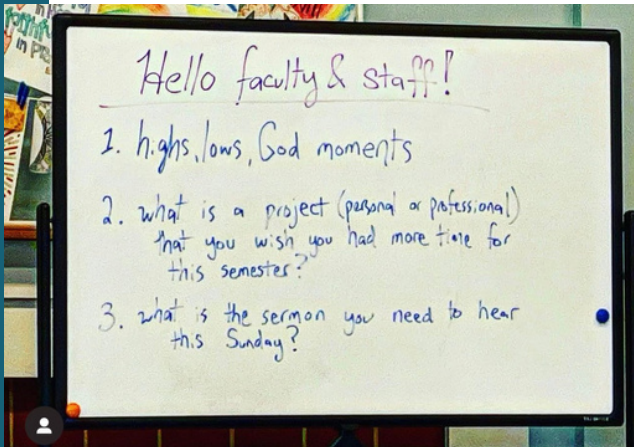 in PR
Hello faculty & staff!
1. highs, lows, God moments
2. what is a project (personal or professional)
that you wish you had more time for
this semester?
3. what is the sermon you need to hear
this Sunday?